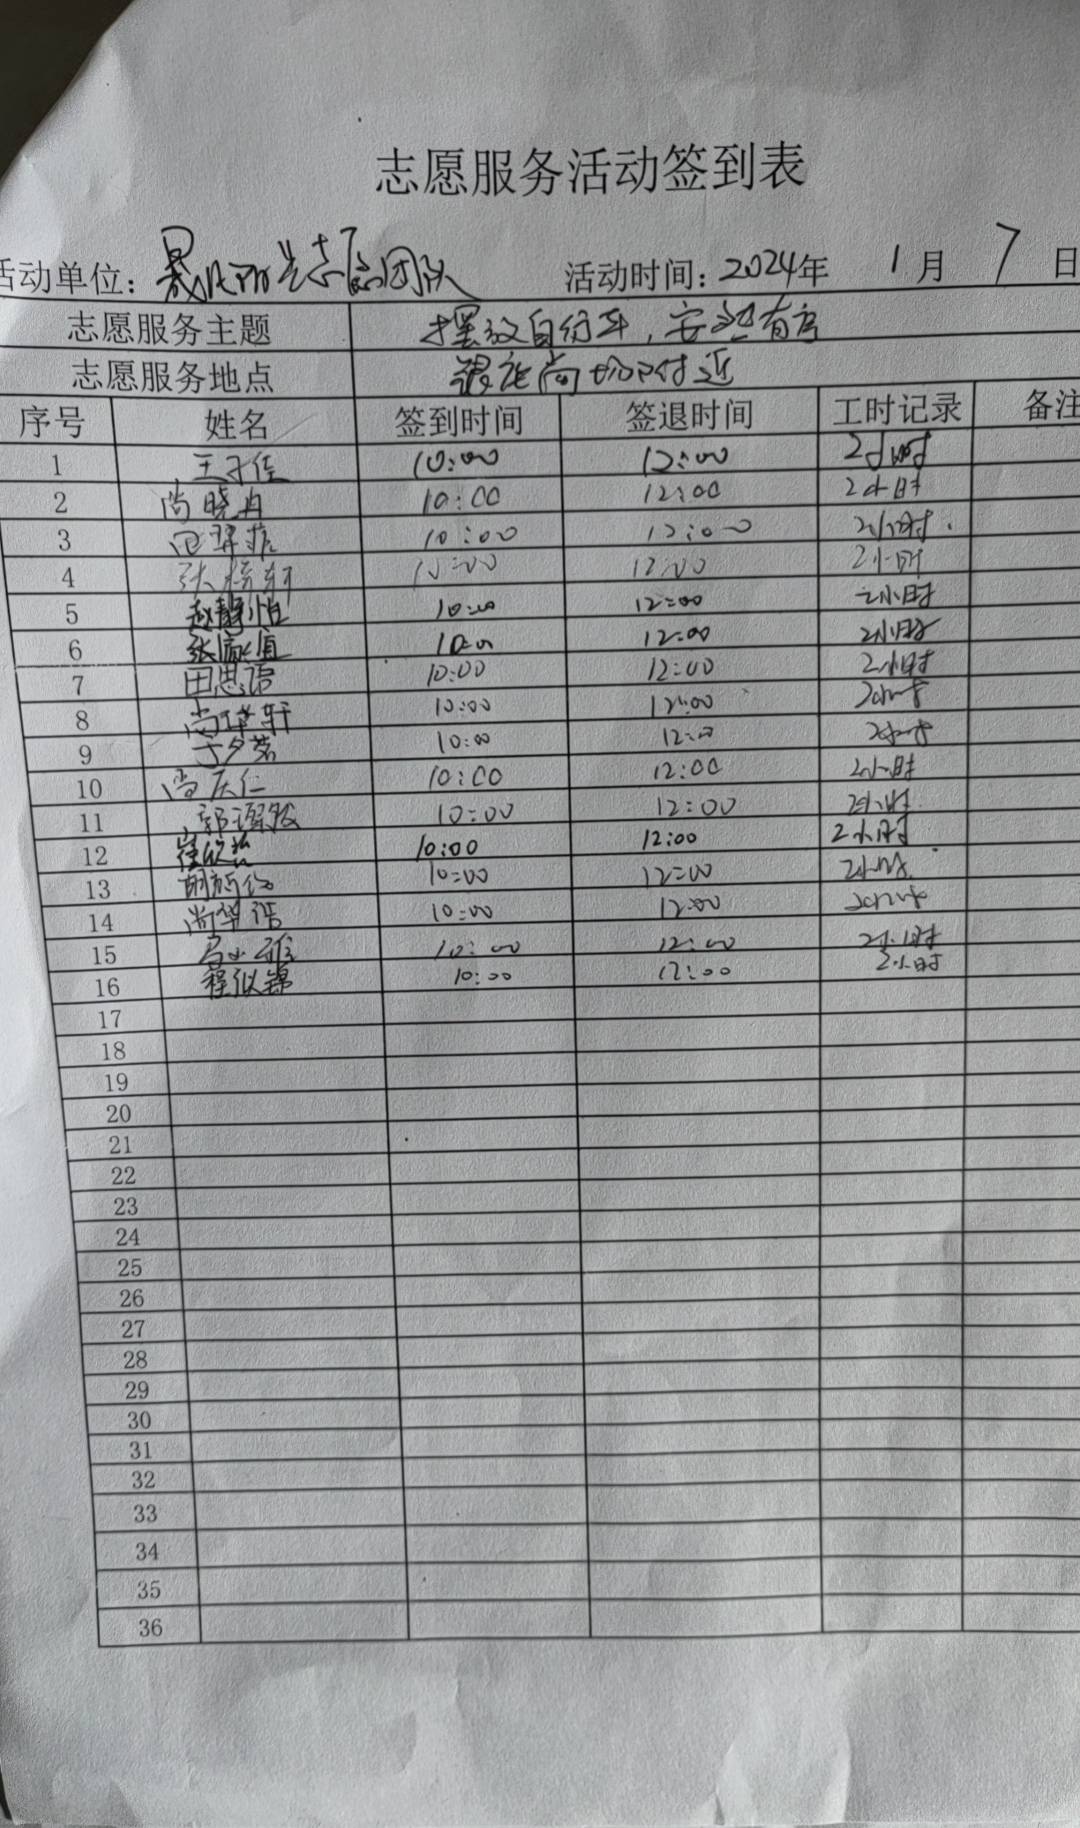 志愿服务活动签到表
活动单位: 志愿团队 活动时间: 2024年 1月 7日
志愿服务主题 摆放自行车,安全有序
志愿服务地点 银座商场附近
序号 姓名 签到时间 签退时间 工时记录 备注
1 王子佳 10:00 12:00 2小时
2 尚晓冉 10:00 12:00 2小时
3 10:00 12:00 2小时.
4 张 轩 10:00 12:00 2小时
5 赵静怡 10:00 12:00 2小时
6 张 10:00 12:00 2小时
7 田思语 10:00 12:00 2小时
8 尚 轩 10:00 12:00 2小时
9 于夕茗 10:00 12:00 2小时
10 尚庆仁 10:00 12:00 2小时
11 郭 10:00 12:00 2小时
12 崔欣芸 10:00 12:00 2小时
13 胡 10:00 12:00 2小时
14 尚华浩 10:00 12:00 2小时
15 马小雅 10:00 12:00 2小时
16 程似锦 10:00 12:00 2小时
17
18
19
20
21
22
23
24
25
26
27
28
29
30
31
32
33
34
35
36